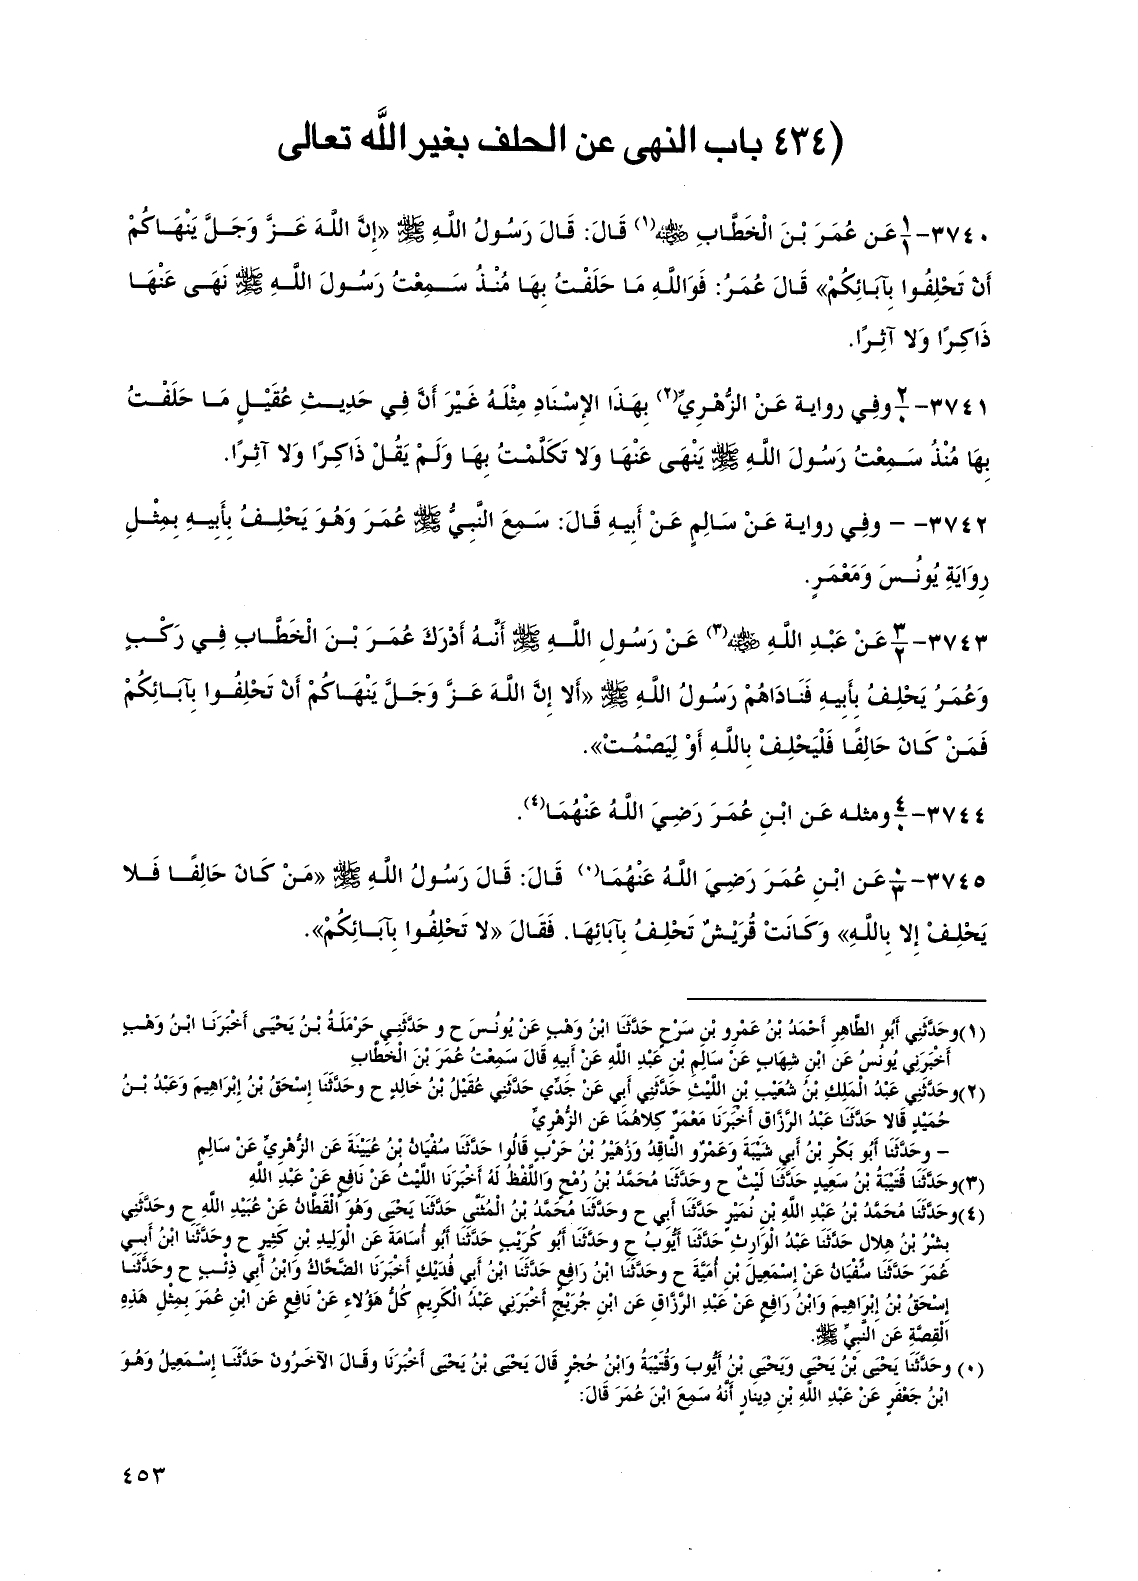 (٤٣٤ باب النهى عن الحلف بغير اللَّه تعالى
٣٧٤٠- ١/١ عَن عُمَرَ بْنَ الْخَطَّابِ ﷺ(١) قَالَ: قَالَ رَسُولُ اللَّهِ ﷺ «إِنَّ اللَّهَ عَزَّ وَجَلَّ يَنْهَاكُمْ
أَنْ تَحْلِفُوا بِآبَائِكُمْ» قَالَ عُمَرُ: فَوَاللَّهِ مَا حَلَفْتُ بِهَا مُنْذُ سَمِعْتُ رَسُولَ اللَّهِ ﷺ نَهَى عَنْهَا
ذَاكِرًا وَلا آثِرًا.
٣٧٤١- ٢/٠ وفِي رواية عَنْ الزُّهْرِيِّ(٢) بِهَذَا الإِسْنَادِ مِثْلَهُ غَيْرَ أَنَّ فِي حَدِيثِ عُقَيْلٍ مَا حَلَفْتُ
بِهَا مُنْذُ سَمِعْتُ رَسُولَ اللَّهِ ﷺ يَنْهَى عَنْهَا وَلا تَكَلَّمْتُ بِهَا وَلَمْ يَقُلْ ذَاكِرًا وَلا آثِرًا.
٣٧٤٢- – وفِي رواية عَنْ سَالِمٍ عَنْ أَبِيهِ قَالَ: سَمِعَ النَّبِيُّ ﷺ عُمَرَ وَهُوَ يَحْلِفُ بِأَبِيهِ بِمِثْلِ
رِوَايَةِ يُونُسَ وَمَعْمَرٍ.
٣٧٤٣- ٣/٢ عَنْ عَبْدِ اللَّهِ ﷺ(٣) عَنْ رَسُولِ اللَّهِ ﷺ أَنَّهُ أَدْرَكَ عُمَرَ بْنَ الْخَطَّابِ فِي رَكْبٍ
وَعُمَرُ يَحْلِفُ بِأَبِيهِ فَنَادَاهُمْ رَسُولُ اللَّهِ ﷺ «أَلا إِنَّ اللَّهَ عَزَّ وَجَلَّ يَنْهَاكُمْ أَنْ تَحْلِفُوا بِآبَائِكُمْ
فَمَنْ كَانَ حَالِفًا فَلْيَحْلِفْ بِاللَّهِ أَوْ لِيَصْمُتْ».
٣٧٤٤- ٤/٠ ومثله عَن ابْنِ عُمَرَ رَضِيَ اللَّهُ عَنْهُمَا(٤).
٣٧٤٥- ٥/٣ عَن ابْنِ عُمَرَ رَضِيَ اللَّهُ عَنْهُمَا(٥) قَالَ: قَالَ رَسُولُ اللَّهِ ﷺ «مَنْ كَانَ حَالِفًا فَلا
يَحْلِفْ إِلا بِاللَّهِ» وَكَانَتْ قُرَيْشٌ تَحْلِفُ بِآبَائِهَا. فَقَالَ «لا تَحْلِفُوا بِآبَائِكُمْ».
(١) وحَدَّثَنِي أَبُو الطَّاهِرِ أَحْمَدُ بْنُ عَمْرِو بْنِ سَرْحٍ حَدَّثَنَا ابْنُ وَهْبٍ عَنْ يُونُسَ ح و حَدَّثَنِي حَرْمَلَةُ بْنُ يَحْيَى أَخْبَرَنَا ابْنُ وَهْبٍ
أَخْبَرَنِي يُونُسُ عَن ابْنِ شِهَابٍ عَنْ سَالِمِ بْنِ عَبْدِ اللَّهِ عَنْ أَبِيهِ قَالَ سَمِعْتُ عُمَرَ بْنَ الْخَطَّابِ
(٢) وحَدَّثَنِي عَبْدُ الْمَلِكِ بْنُ شُعَيْبِ بْنِ اللَّيْثِ حَدَّثَنِي أَبِي عَنْ جَدِّي حَدَّثَنِي عُقَيْلُ بْنُ خَالِدٍ ح وحَدَّثَنَا إِسْحَقُ بْنُ إِبْرَاهِيمَ وَعَبْدُ بْنُ
حُمَيْدٍ قَالا حَدَّثَنَا عَبْدُ الرَّزَّاقِ أَخْبَرَنَا مَعْمَرٌ كِلاهُمَا عَن الزُّهْرِيِّ
– وحَدَّثَنَا أَبُو بَكْرِ بْنُ أَبِي شَيْبَةَ وَعَمْرٌو النَّاقِدُ وَزُهَيْرُ بْنُ حَرْبٍ قَالُوا حَدَّثَنَا سُفْيَانُ بْنُ عُيَيْنَةَ عَن الزُّهْرِيِّ عَنْ سَالِمٍ
(٣) وحَدَّثَنَا قُتَيْبَةُ بْنُ سَعِيدٍ حَدَّثَنَا لَيْثٌ ح وحَدَّثَنَا مُحَمَّدُ بْنُ رُمْحٍ وَاللَّفْظُ لَهُ أَخْبَرَنَا اللَّيْثُ عَنْ نَافِعٍ عَنْ عَبْدِ اللَّهِ
(٤) وحَدَّثَنَا مُحَمَّدُ بْنُ عَبْدِ اللَّهِ بْنِ نُمَيْرٍ حَدَّثَنَا أَبِي ح وحَدَّثَنَا مُحَمَّدُ بْنُ الْمُثَنَّى حَدَّثَنَا يَحْيَى وَهُوَ الْقَطَّانُ عَنْ عُبَيْدِ اللَّهِ ح وحَدَّثَنِي
بِشْرُ بْنُ هِلالٍ حَدَّثَنَا عَبْدُ الْوَارِثِ حَدَّثَنَا أَيُّوبُ ح وحَدَّثَنَا أَبُو كُرَيْبٍ حَدَّثَنَا أَبُو أُسَامَةَ عَن الْوَلِيدِ بْنِ كَثِيرٍ ح وحَدَّثَنَا ابْنُ أَبِي
عُمَرَ حَدَّثَنَا سُفْيَانُ عَنْ إِسْمَعِيلَ بْنِ أُمَيَّةَ ح وحَدَّثَنَا ابْنُ رَافِعٍ حَدَّثَنَا ابْنُ أَبِي فُدَيْكٍ أَخْبَرَنَا الضَّحَّاكُ وَابْنُ أَبِي ذِئْبٍ ح وحَدَّثَنَا
إِسْحَقُ بْنُ إِبْرَاهِيمَ وَابْنُ رَافِعٍ عَنْ عَبْدِ الرَّزَّاقِ عَن ابْنِ جُرَيْجٍ أَخْبَرَنِي عَبْدُ الْكَرِيمِ كُلُّ هَؤُلاءِ عَنْ نَافِعٍ عَن ابْنِ عُمَرَ بِمِثْلِ هَذِهِ
الْقِصَّةِ عَن النَّبِيِّ ﷺ.
(٥) وحَدَّثَنَا يَحْيَى بْنُ يَحْيَى وَيَحْيَى بْنُ أَيُّوبَ وَقُتَيْبَةُ وَابْنُ حُجْرٍ قَالَ يَحْيَى بْنُ يَحْيَى أَخْبَرَنَا وقَالَ الآخَرُونَ حَدَّثَنَا إِسْمَعِيلُ وَهُوَ
ابْنُ جَعْفَرٍ عَنْ عَبْدِ اللَّهِ بْنِ دِينَارٍ أَنَّهُ سَمِعَ ابْنَ عُمَرَ قَالَ:
٤٥٣